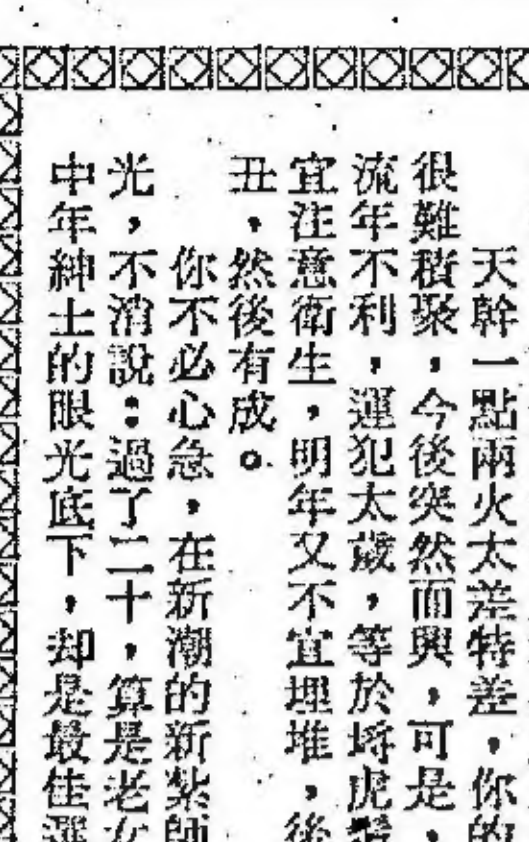 天幹一點兩火太差特差，你的
很難積聚，今後突然而興，可是，
流年不利，運犯太歲，等於捋虎鬚
宜注意衛生，明年又不宜埋堆，後
丑，然後有成。
你不必心急，在新潮的新紮師
光，不消說：過了二十，算是老女
中年紳士的眼光底下，却是最佳選